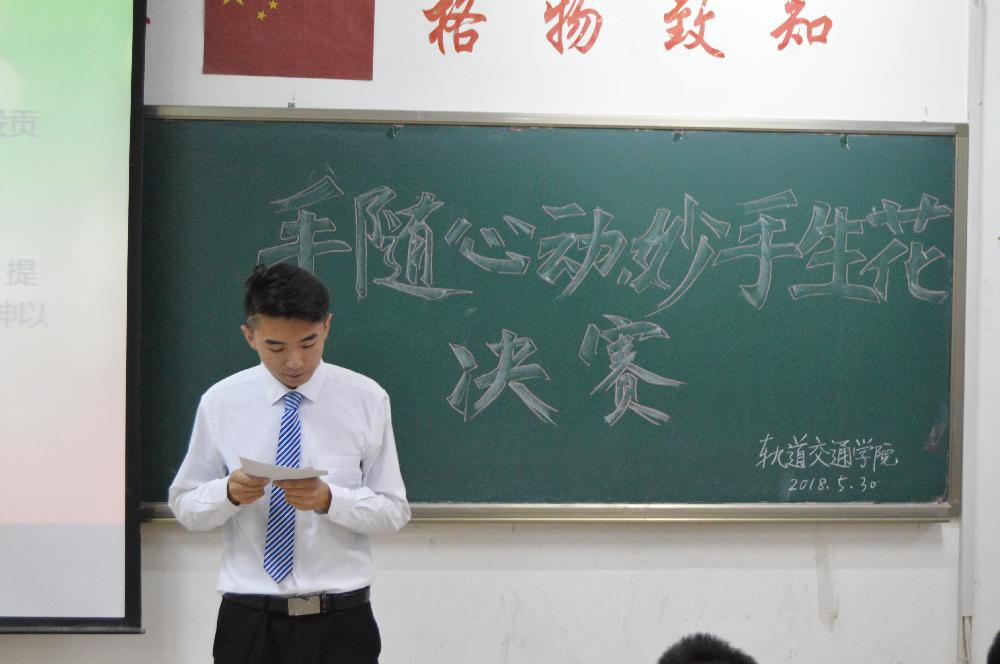 格物致知
手随心动妙手生花
决赛
轨道交通学院
2018.5.30
贡
提
以